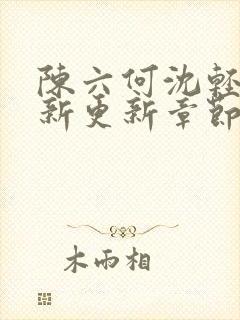 陳六何沈輕
新更新章節
木雨相